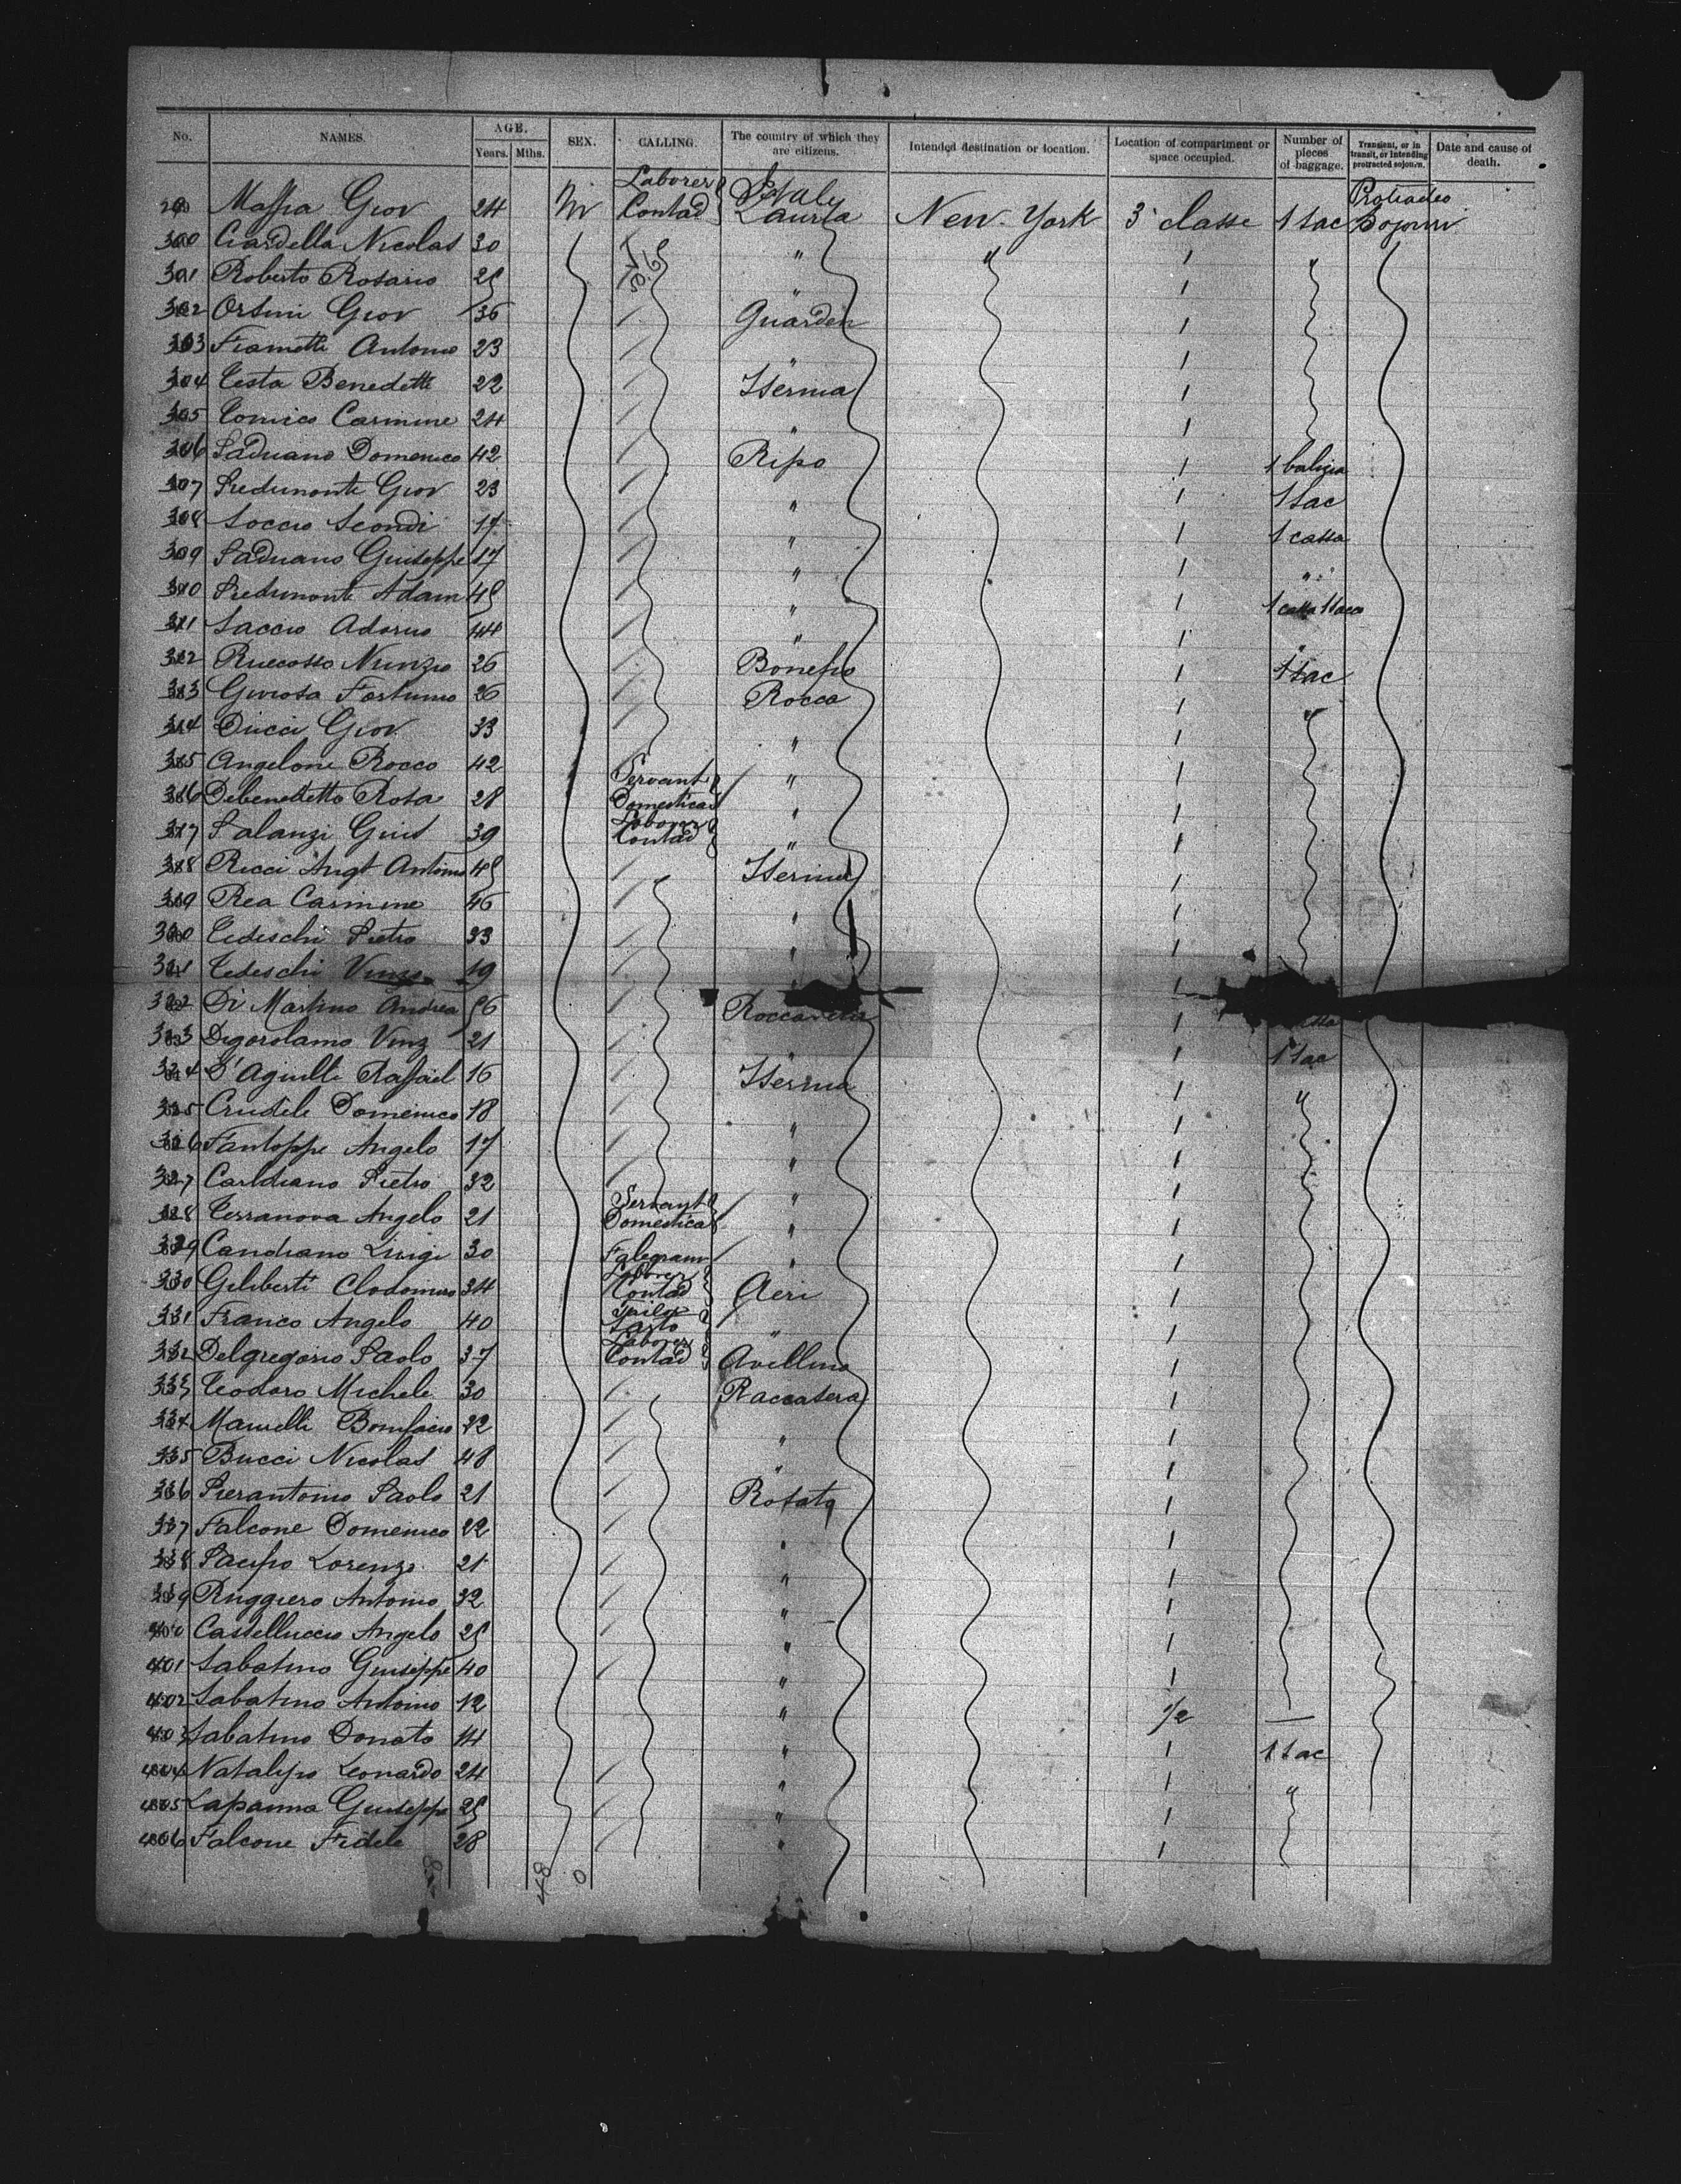 No. NAMES. AGE. Years. Mths. SEX. CALLING. The country of which they are citizens. Intended destination or location. Location of compartment or space occupied. Number of pieces of baggage. Transient, or in transit, or intending protracted sojourn. Date and cause of death.
Massa Giov 24 M Laborer Contad Italy Lauria New-York 3 classe 1 sac Sojourn
300 Ciardella Nicolas 30 " " 1 "
301 Roberto Rosario 25 " 1
302 Orsini Giov 36 Guarden 1
303 Antonio 23 " 1
304 Testa Benedetti 22 Isernia 1
305 Tomico Carmine 24 " 1
306 Paduano Domenico 42 Ripo 1 1 baligia
307 Piedimonte Giov 23 " 1 1 sac
308 Soccio Scondi 17 " 1 1 cassa
309 Paduano Guiseppe 17 " 1 "
310 Piedimonte Adam 45 " 1 1 cassa 1 sacco
311 Saccio Adorno 44 " 1 "
312 Nunzio 26 Bonefro 1 1 sac
313 Giviosa Fortunno 26 Rocca 1 "
314 Ducci Giov 33 " 1
315 Angelone Rocco 42 " 1
316 Debenedetto Rosa 28 Servant Domestica " 1
317 Palanzi Guis 39 Laborer Contad " 1
318 Ricci Angt Antonio 45 Isernia 1
319 Rea Carmine 46 " 1
320 Tedeschi Pietro 33 " 1
321 Tedeschi Vinzo 19 1
322 Di Martino Andrea 56 1
323 Digorolamo Vinz 21 " 1 1 sac
324 D'Agnilli Raffael 16 Isernia 1 "
325 Crudele Domenico 18 " 1
326 Fantoppe Angelo 17 " 1
327 Cardiano Pietro 32 " 1
328 Terranova Angelo 21 Servant Domestica " 1
329 Candiano Luigi 30 Falegnam " 1
330 Geliberti Clodomiro 34 Laborer Contad Aeri 1
331 Franco Angelo 40 Tailor Sarto " 1
332 Delgregorio Paolo 37 Laborer Contad Avellino 1
333 Teodoro Michele 30 Raccasera 1
334 Bonifacio 22 " 1
335 Bucci Nicolas 48 " 1
336 Pierantonio Paolo 21 Rosata 1
337 Falcone Domenico 22 " 1
338 Lorenzo 21 " 1
339 Ruggiero Antonio 32 " 1
400 Castelluccio Angelo 25 " 1
401 Sabatino Guiseppe 40 " 1
402 Sabatino Antonio 12 " 1/2 —
403 Sabatino Donato 14 " 1 1 sac
404 Natalipo Leonardo 24 " 1 "
405 Lapanna Guiseppe 25 " 1
406 Falcone Fidele 28 " 1